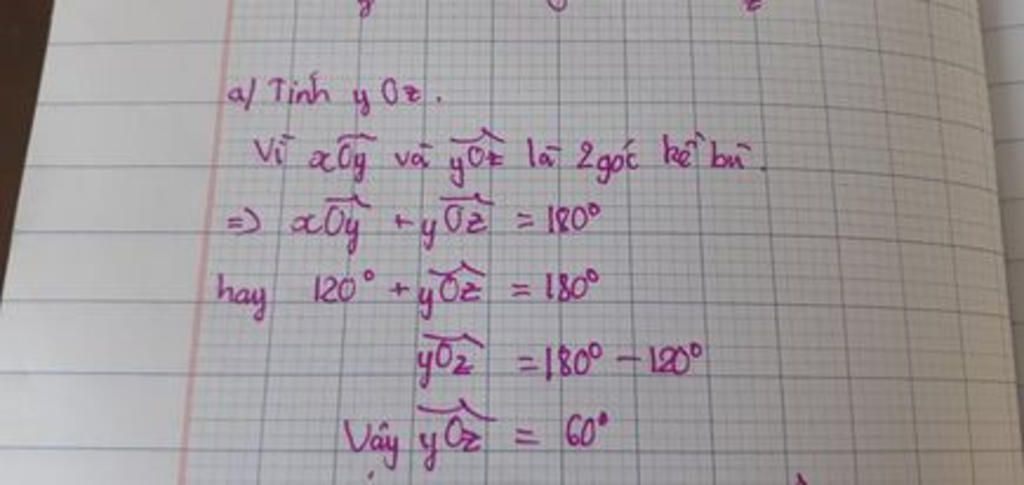 a/ Tính yOz.
Vì xOy và yOz là 2 góc kề bù.
=> xOy + yOz = 180°
hay 120° + yOz = 180°
yOz = 180° - 120°
Vậy yOz = 60°